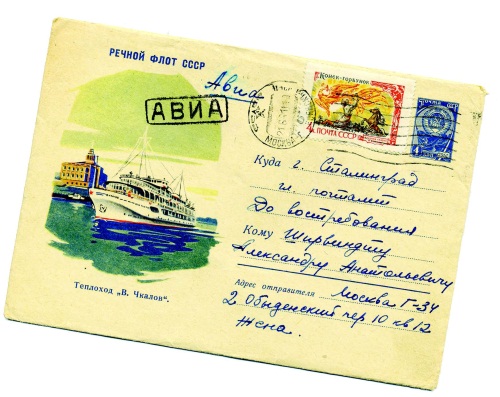 РЕЧНОЙ ФЛОТ СССР
Авиа
АВИА
Конек-горбунок
ПОЧТА СССР
ПОЧТА СССР
МОСКВА
Куда г. Сталинград
гл. почтамт
До востребования
Кому Ширвиндту
Александру Анатольевичу
Адрес отправителя Москва Г-34
2 Обыденский пер 10 кв 12
Жена.
Теплоход „В. Чкалов“.